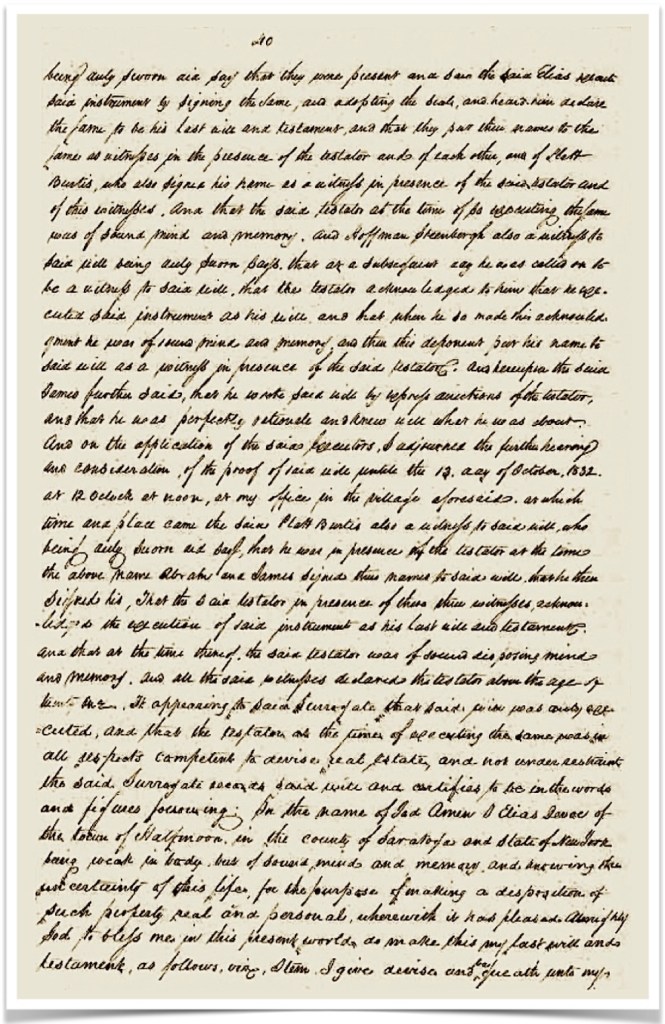 40
being duly sworn did say that they were present and saw the said Elias execute
said instrument by signing the same, and adopting the seal, and heard him declare
the same to be his last will and testament, and that they put their names to the
same as witnesses in the presence of the testator and of each other, and of Platt
Burtis, who also signed his name as a witness in presence of the said testator and
of this witnesses. And that the said testator at the time of so executing the same
was of sound mind and memory. And Hoffman Steenbergh also a witness to
said will being duly sworn says, that at a subsequent day he was called on to
be a witness to said will, that the testator acknowledged to him that he exe-
cuted said instrument as his will, and that when he so made this acknowled
gment he was of sound mind and memory, and then this deponent put his name to
said will as a witness in presence of the said testator. And hereupon the said
James further said, that he wrote said will by express directions of the testator,
and that he was perfectly rationale and knew well what he was about.
And on the application of the said executors, I adjourned the further hearing
and consideration, of the proof of said will untile the 13. day of October, 1832.
at 12 Oclock at noon, at my office in the village aforesaid. at which
time and place came the said Platt Burtis also a witness to said will, who
being duly sworn did say, that he was in presence of the testator at the time
the above name Abraham and James signed their names to said will, that he then
signed his, That the said testator in presence of these three witnesses, acknow-
ledged the execution of said instrument as his last will and testament.
and that at the time thereof, the said testator was of sound disposing mind
and memory. And all the said witnesses declared the testator above the age of
twenty one. It appearing to said Surrogate that said will was duly exe-
cuted, and that the testator at the time of executing the same was in
all respects competent to devise real estate, and not under restraint,
the said Surrogate records said will and certifies to be in the words
and figures following: In the name of God Amen I Elias Devoe of
the town of Halfmoon, in the county of Saratoga and State of New York
being weak in body, but of sound mind and memory, and knowing the
uncertainty of this life, for the purpose of making a desposition of
such property real and personal, wherewith it has pleased Almighty
God to bless me in this present world, do make this my last will and
testament, as follows, viz, Item. I give devise and bequeath unto my